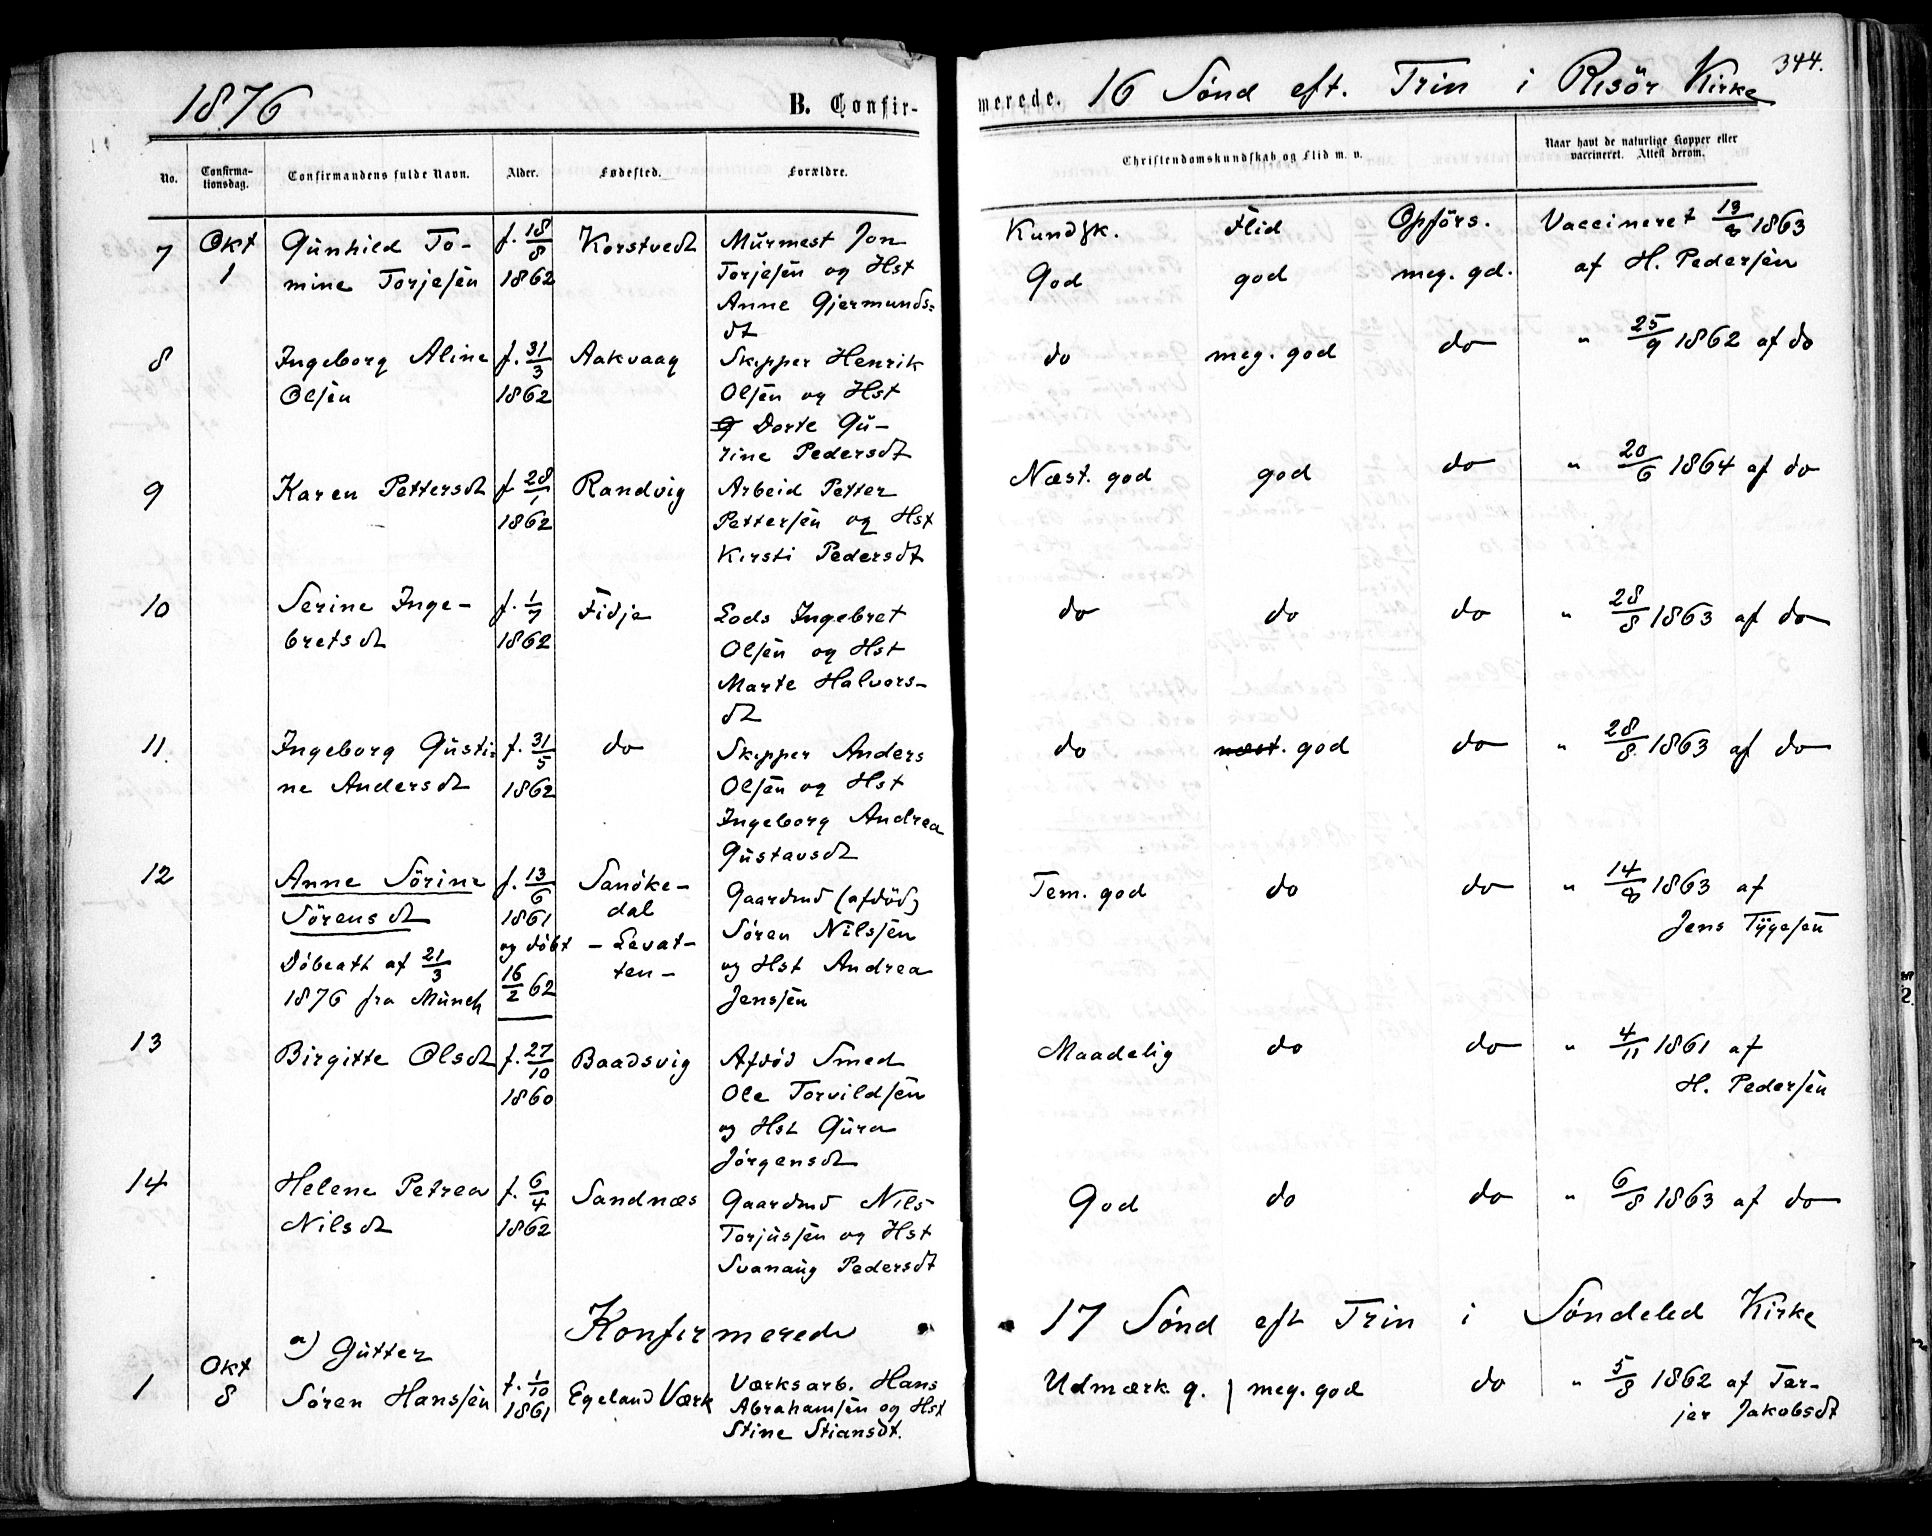 1876 B. Confir-
No. Confirma-tionsdag. Confirmandens fulde Navn. Alder. Fødested. Forældre.
7 Okt Gunhild To- f. 18/8 Korstvedt Murmest Jon
1 mine Torjesen 1862 Torjesen og Hst
Anne Gjermunds-
dt
8 Ingeborg Aline f. 31/3 Aakvaag Skipper Henrik
Olsen 1862 Olsen og Hst
Dorte Gu-
rine Pedersdt
9 Karen Pettersdt f 28/1 Randvig Arbeid Petter
1862 Pettersen og Hst
Kirsti Pedersdt
10 Serine Inge- f. 1/7 Fidje Lods Ingebret
bretsdt 1862 Olsen og Hst
Marte Halvors-
dt
11. Ingeborg Gusti- f. 31/5 do Skipper Anders
ne Andersdt 1862 Olsen og Hst
Ingeborg Andrea
Gustavsdt
12 Anne Sörine f. 13/6 Sanöke- Gaardmd (afdöd)
Sörensdt 1861 dal Sören Nilssen
og döbt - Levat- og Hst Andrea
Döbeatt af 21/3 16/2 62 ten - Jenssen
1876 fra Münch
13 Birgitte Olsdt f. 27/10 Baadsvig Afdöd Smed
1860 Ole Torvildsen
og Hst Gura
Jörgensdt
14 Helene Petrea f. 6/4 Sandnæs Gaardmd Nils
Nilsdt 1862 Torjussen og Hst
Svanaug Pedersdt
Konfirmerede
a) Gutter
1 Okt 8 Sören Hanssen f. 1/10 1861 Egeland Værk Værksarb. Hans
Abrahamsen og Hst
Stine Stiansdt.
344.
merede. 16 Sönd eft. Trin i Risör Kirke
Christendomskundskab og Flid m. v. Naar havt de naturlige Kopper eller
vaccineret. Attest derom.
Kundsk. Flid Opförs. Vaccineret 13/8 1863
God god meg. gd. af H. Pedersen
do meg. god do " 25/9 1862 af do
Næst. god god do " 20/6 1864 af do
do do do " 28/8 1863 af do
do næst. god do " 28/8 1863 af do
Tem. god do do " 14/8 1863 af
Jens Tygesen
Maadelig do do " 4/11 1861 af
H. Pedersen
God do do " 6/8 1863 af do
17 Sönd eft Trin i Söndeled Kirke
Udmærk. g. meg. god do " 5/8 1862 af Ter-
jer Jakobsdt